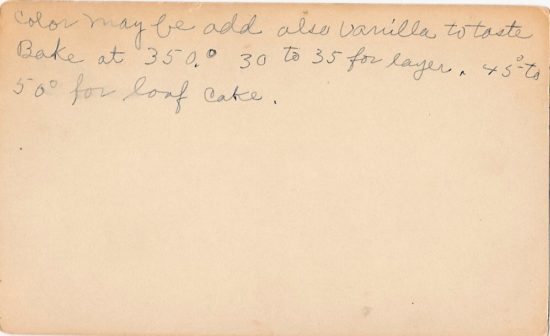 color may be add also vanilla to taste
Bake at 350.° 30 to 35 for layer. 45° to
50° for loaf cake.